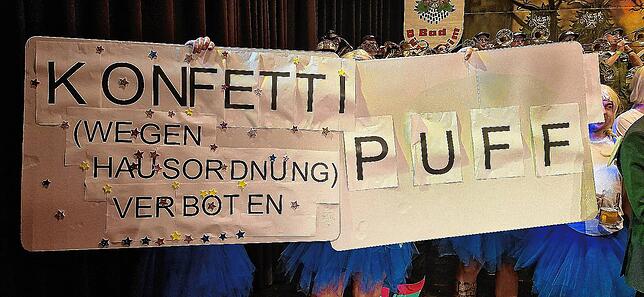 KONFETTI
(WEGEN
HAUSORDNUNG)
VERBOTEN
PUFF
Bad